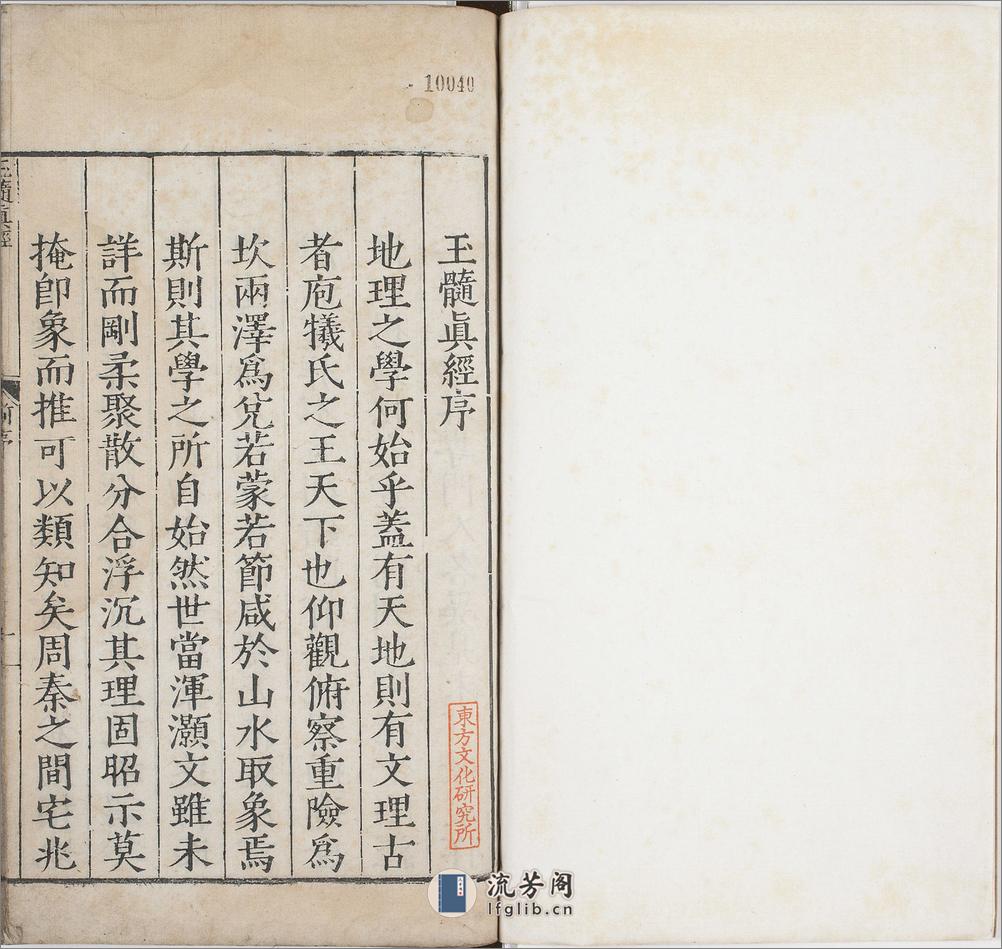 玉髓眞經序
地理之學何始乎蓋有天地則有文理古
者庖犧氏之王天下也仰觀俯察重險爲
坎兩澤爲兌若蒙若節咸於山水取象焉
斯則其學之所自始然世當渾灝文雖未
詳而剛柔聚散分合浮沉其理固昭示莫
掩卽象而推可以類知矣周秦之間宅兆
玉髓眞經
前序
10040
東方文化研究所
流芳阁
lfglib.cn